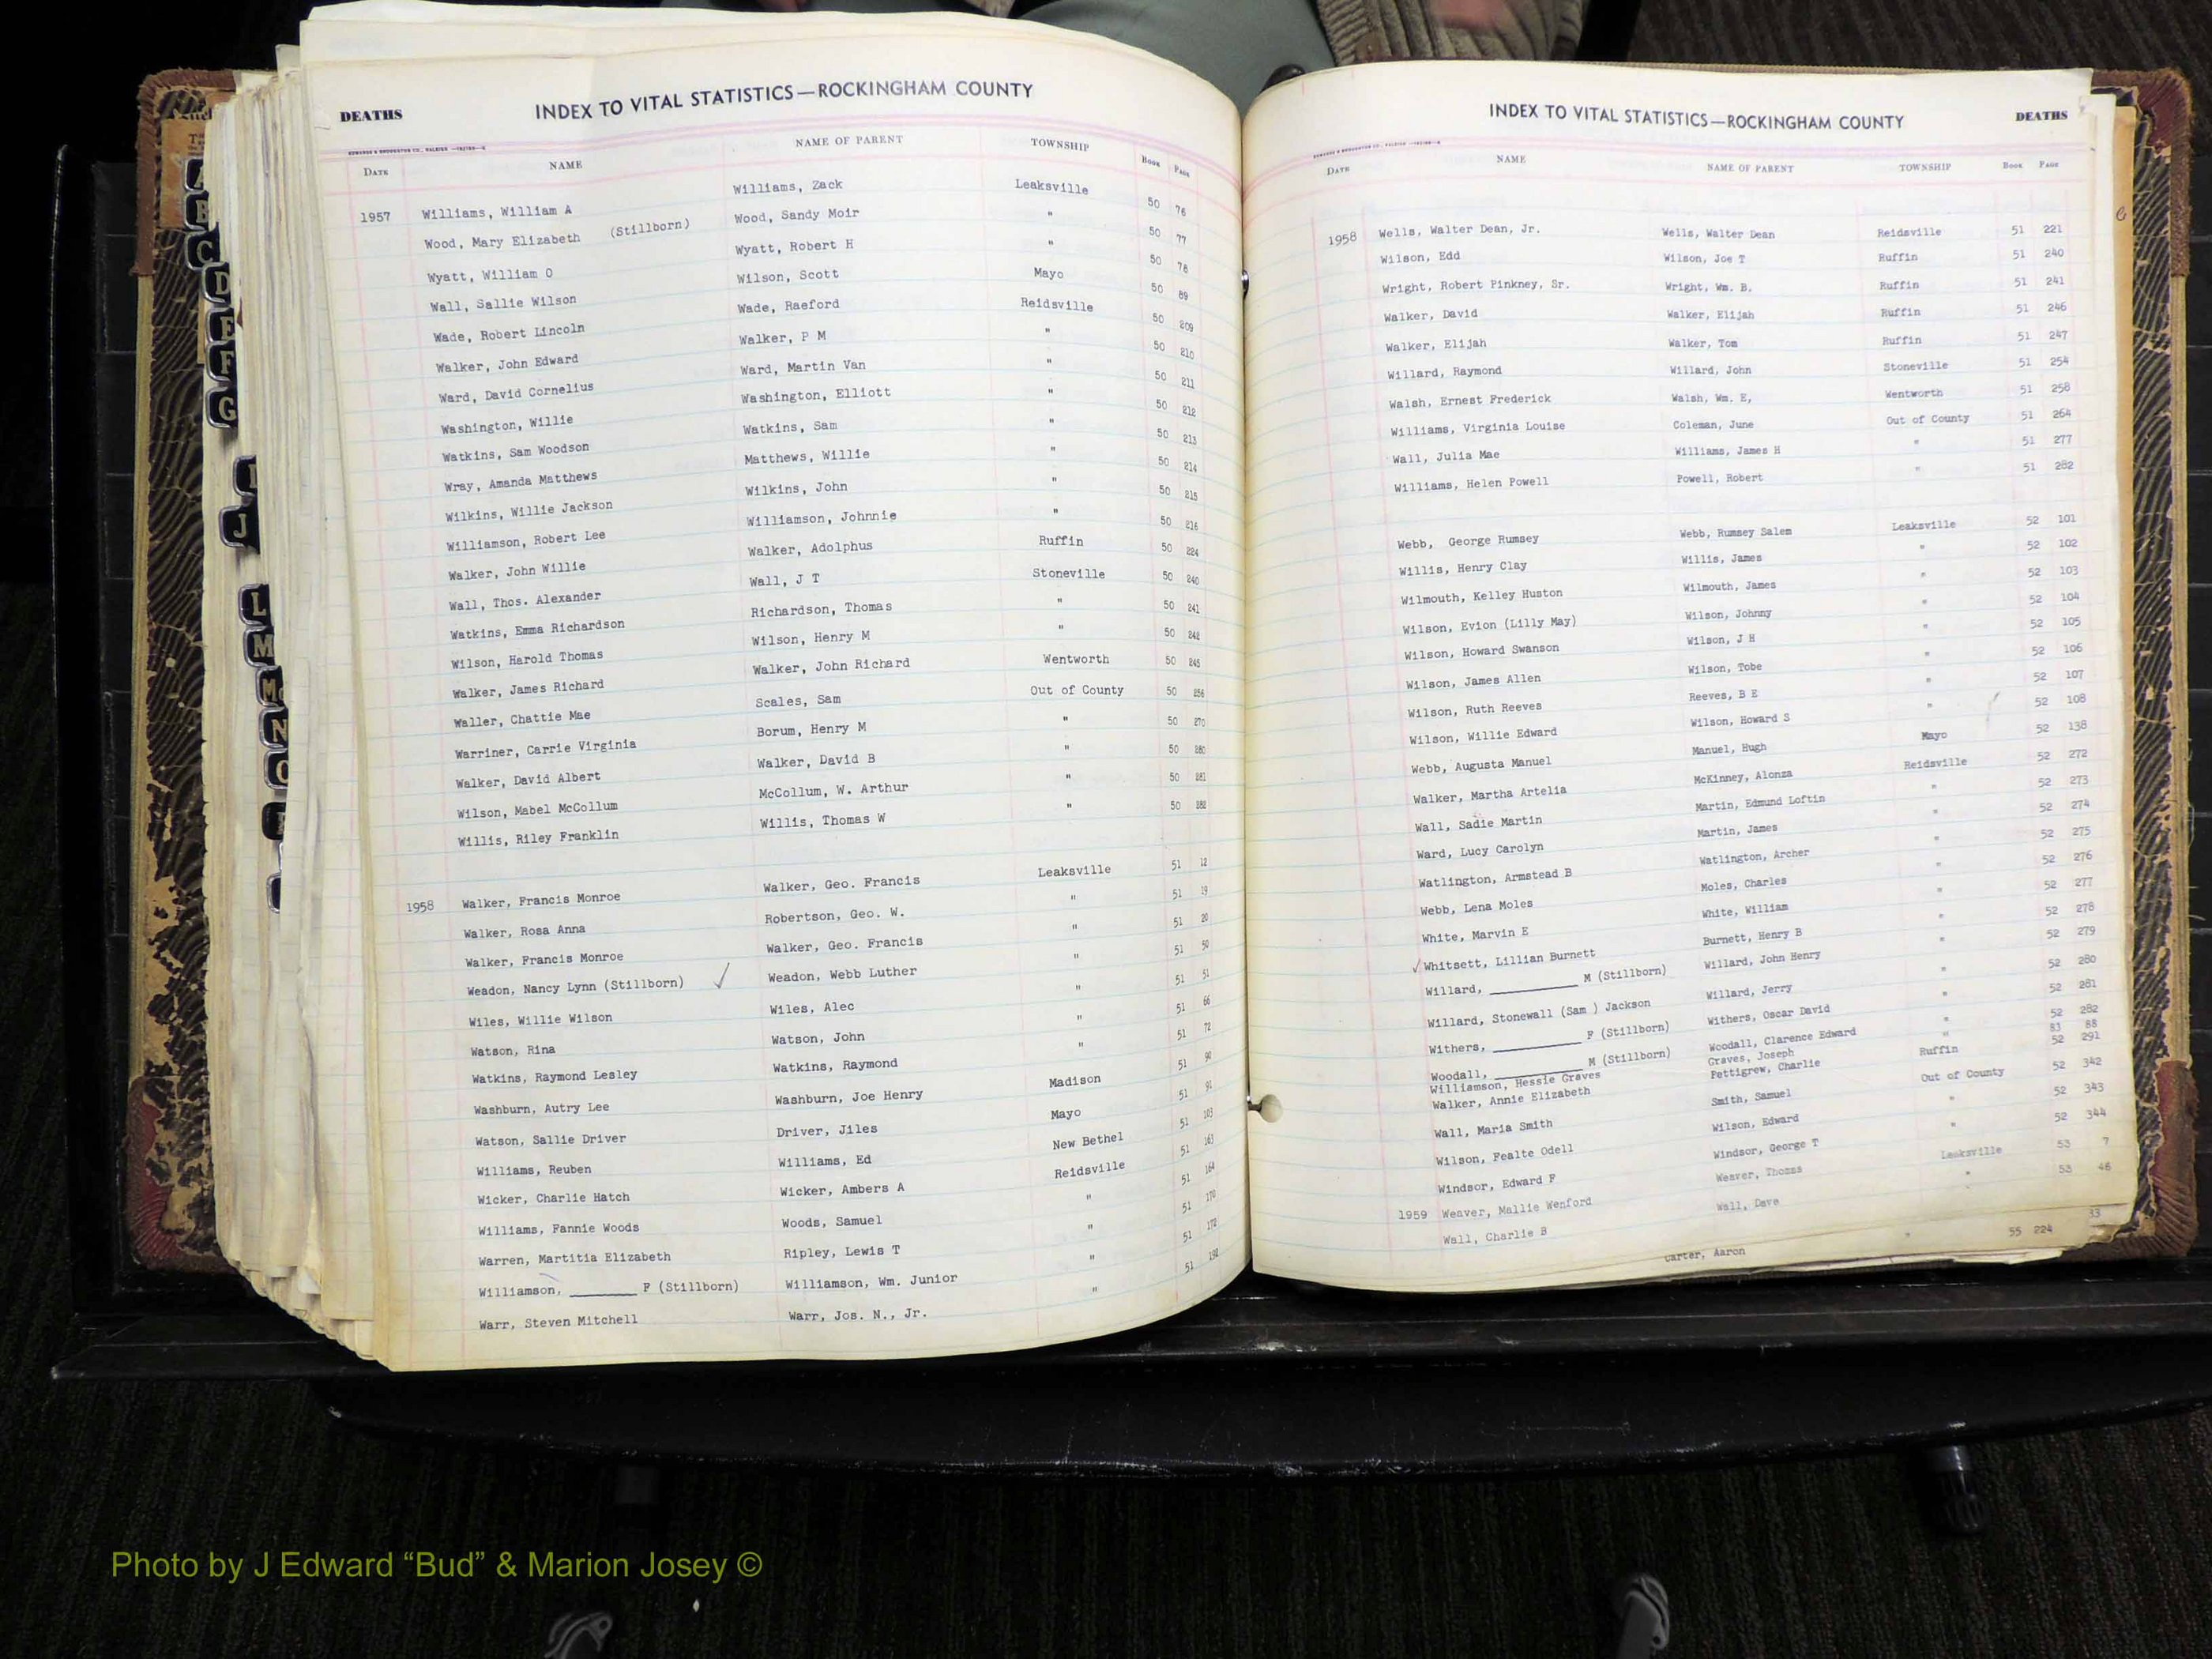 DEATHS
INDEX TO VITAL STATISTICS—ROCKINGHAM COUNTY
DATE NAME NAME OF PARENT TOWNSHIP BOOK PAGE
1957 Williams, William A Williams, Zack Leaksville 50 76
Wood, Mary Elizabeth (Stillborn) Wood, Sandy Moir " 50 77
Wyatt, William O Wyatt, Robert H " 50 78
Wall, Sallie Wilson Wilson, Scott Mayo 50 89
Wade, Robert Lincoln Wade, Raeford Reidsville 50 209
Walker, John Edward Walker, P M " 50 210
Ward, David Cornelius Ward, Martin Van " 50 211
Washington, Willie Washington, Elliott " 50 212
Watkins, Sam Woodson Watkins, Sam " 50 213
Wray, Amanda Matthews Matthews, Willie " 50 214
Wilkins, Willie Jackson Wilkins, John " 50 215
Williamson, Robert Lee Williamson, Johnnie " 50 216
Walker, John Willie Walker, Adolphus Ruffin 50 224
Wall, Thos. Alexander Wall, J T Stoneville 50 240
Watkins, Emma Richardson Richardson, Thomas " 50 241
Wilson, Harold Thomas Wilson, Henry M " 50 242
Walker, James Richard Walker, John Richard Wentworth 50 245
Waller, Chattie Mae Scales, Sam Out of County 50 256
Warriner, Carrie Virginia Borum, Henry M " 50 270
Walker, David Albert Walker, David B " 50 280
Wilson, Mabel McCollum McCollum, W. Arthur " 50 281
Willis, Riley Franklin Willis, Thomas W " 50 282
1958 Walker, Francis Monroe Walker, Geo. Francis Leaksville 51 12
Walker, Rosa Anna Robertson, Geo. W. " 51 19
Walker, Francis Monroe Walker, Geo. Francis " 51 20
Weadon, Nancy Lynn (Stillborn) ✓ Weadon, Webb Luther " 51 50
Wiles, Willie Wilson Wiles, Alec " 51 51
Watson, Rina Watson, John " 51 66
Watkins, Raymond Lesley Watkins, Raymond " 51 72
Washburn, Autry Lee Washburn, Joe Henry Madison 51 90
Watson, Sallie Driver Driver, Jiles Mayo 51 91
Williams, Reuben Williams, Ed New Bethel 51 103
Wicker, Charlie Hatch Wicker, Ambers A Reidsville 51 163
Williams, Fannie Woods Woods, Samuel " 51 164
Warren, Martitia Elizabeth Ripley, Lewis T " 51 170
Williamson, ________ F (Stillborn) Williamson, Wm. Junior " 51 172
Warr, Steven Mitchell Warr, Jos. N., Jr. " 51 192
INDEX TO VITAL STATISTICS—ROCKINGHAM COUNTY
DEATHS
DATE NAME NAME OF PARENT TOWNSHIP BOOK PAGE
1958 Wells, Walter Dean, Jr. Wells, Walter Dean Reidsville 51 221
Wilson, Edd Wilson, Joe T Ruffin 51 240
Wright, Robert Pinkney, Sr. Wright, Wm. B. Ruffin 51 241
Walker, David Walker, Elijah Ruffin 51 246
Walker, Elijah Walker, Tom Ruffin 51 247
Willard, Raymond Willard, John Stoneville 51 254
Walsh, Ernest Frederick Walsh, Wm. E, Wentworth 51 258
Williams, Virginia Louise Coleman, June Out of County 51 264
Wall, Julia Mae Williams, James H " 51 277
Williams, Helen Powell Powell, Robert " 51 282
Webb, George Rumsey Webb, Rumsey Salem Leaksville 52 101
Willis, Henry Clay Willis, James " 52 102
Wilmouth, Kelley Huston Wilmouth, James " 52 103
Wilson, Evion (Lilly May) Wilson, Johnny " 52 104
Wilson, Howard Swanson Wilson, J H " 52 105
Wilson, James Allen Wilson, Tobe " 52 106
Wilson, Ruth Reeves Reeves, B E " 52 107
Wilson, Willie Edward Wilson, Howard S " 52 108
Webb, Augusta Manuel Manuel, Hugh Mayo 52 138
Walker, Martha Artelia McKinney, Alonza Reidsville 52 272
Wall, Sadie Martin Martin, Edmund Loftin " 52 273
Ward, Lucy Carolyn Martin, James " 52 274
Watlington, Armstead B Watlington, Archer " 52 275
Webb, Lena Moles Moles, Charles " 52 276
White, Marvin E White, William " 52 277
✓ Whitsett, Lillian Burnett Burnett, Henry B " 52 278
Willard, __________ M (Stillborn) Willard, John Henry " 52 279
Willard, Stonewall (Sam ) Jackson Willard, Jerry " 52 280
Withers, __________ F (Stillborn) Withers, Oscar David " 52 281
Woodall, __________ M (Stillborn) Woodall, Clarence Edward " 52 282
Williamson, Hessie Graves Graves, Joseph " 83 88
Walker, Annie Elizabeth Pettigrew, Charlie Ruffin 52 291
Wall, Maria Smith Smith, Samuel Out of County 52 342
Wilson, Fealte Odell Wilson, Edward " 52 343
Windsor, Edward F Windsor, George T " 52 344
1959 Weaver, Mallie Wenford Weaver, Thomas Leaksville 53 7
Wall, Charlie B Wall, Dave " 53 46
33
Carter, Aaron " 55 224
A
B
C
D
E
F
G
I
J
L
M
Mc
N
O
Photo by J Edward “Bud” & Marion Josey ©